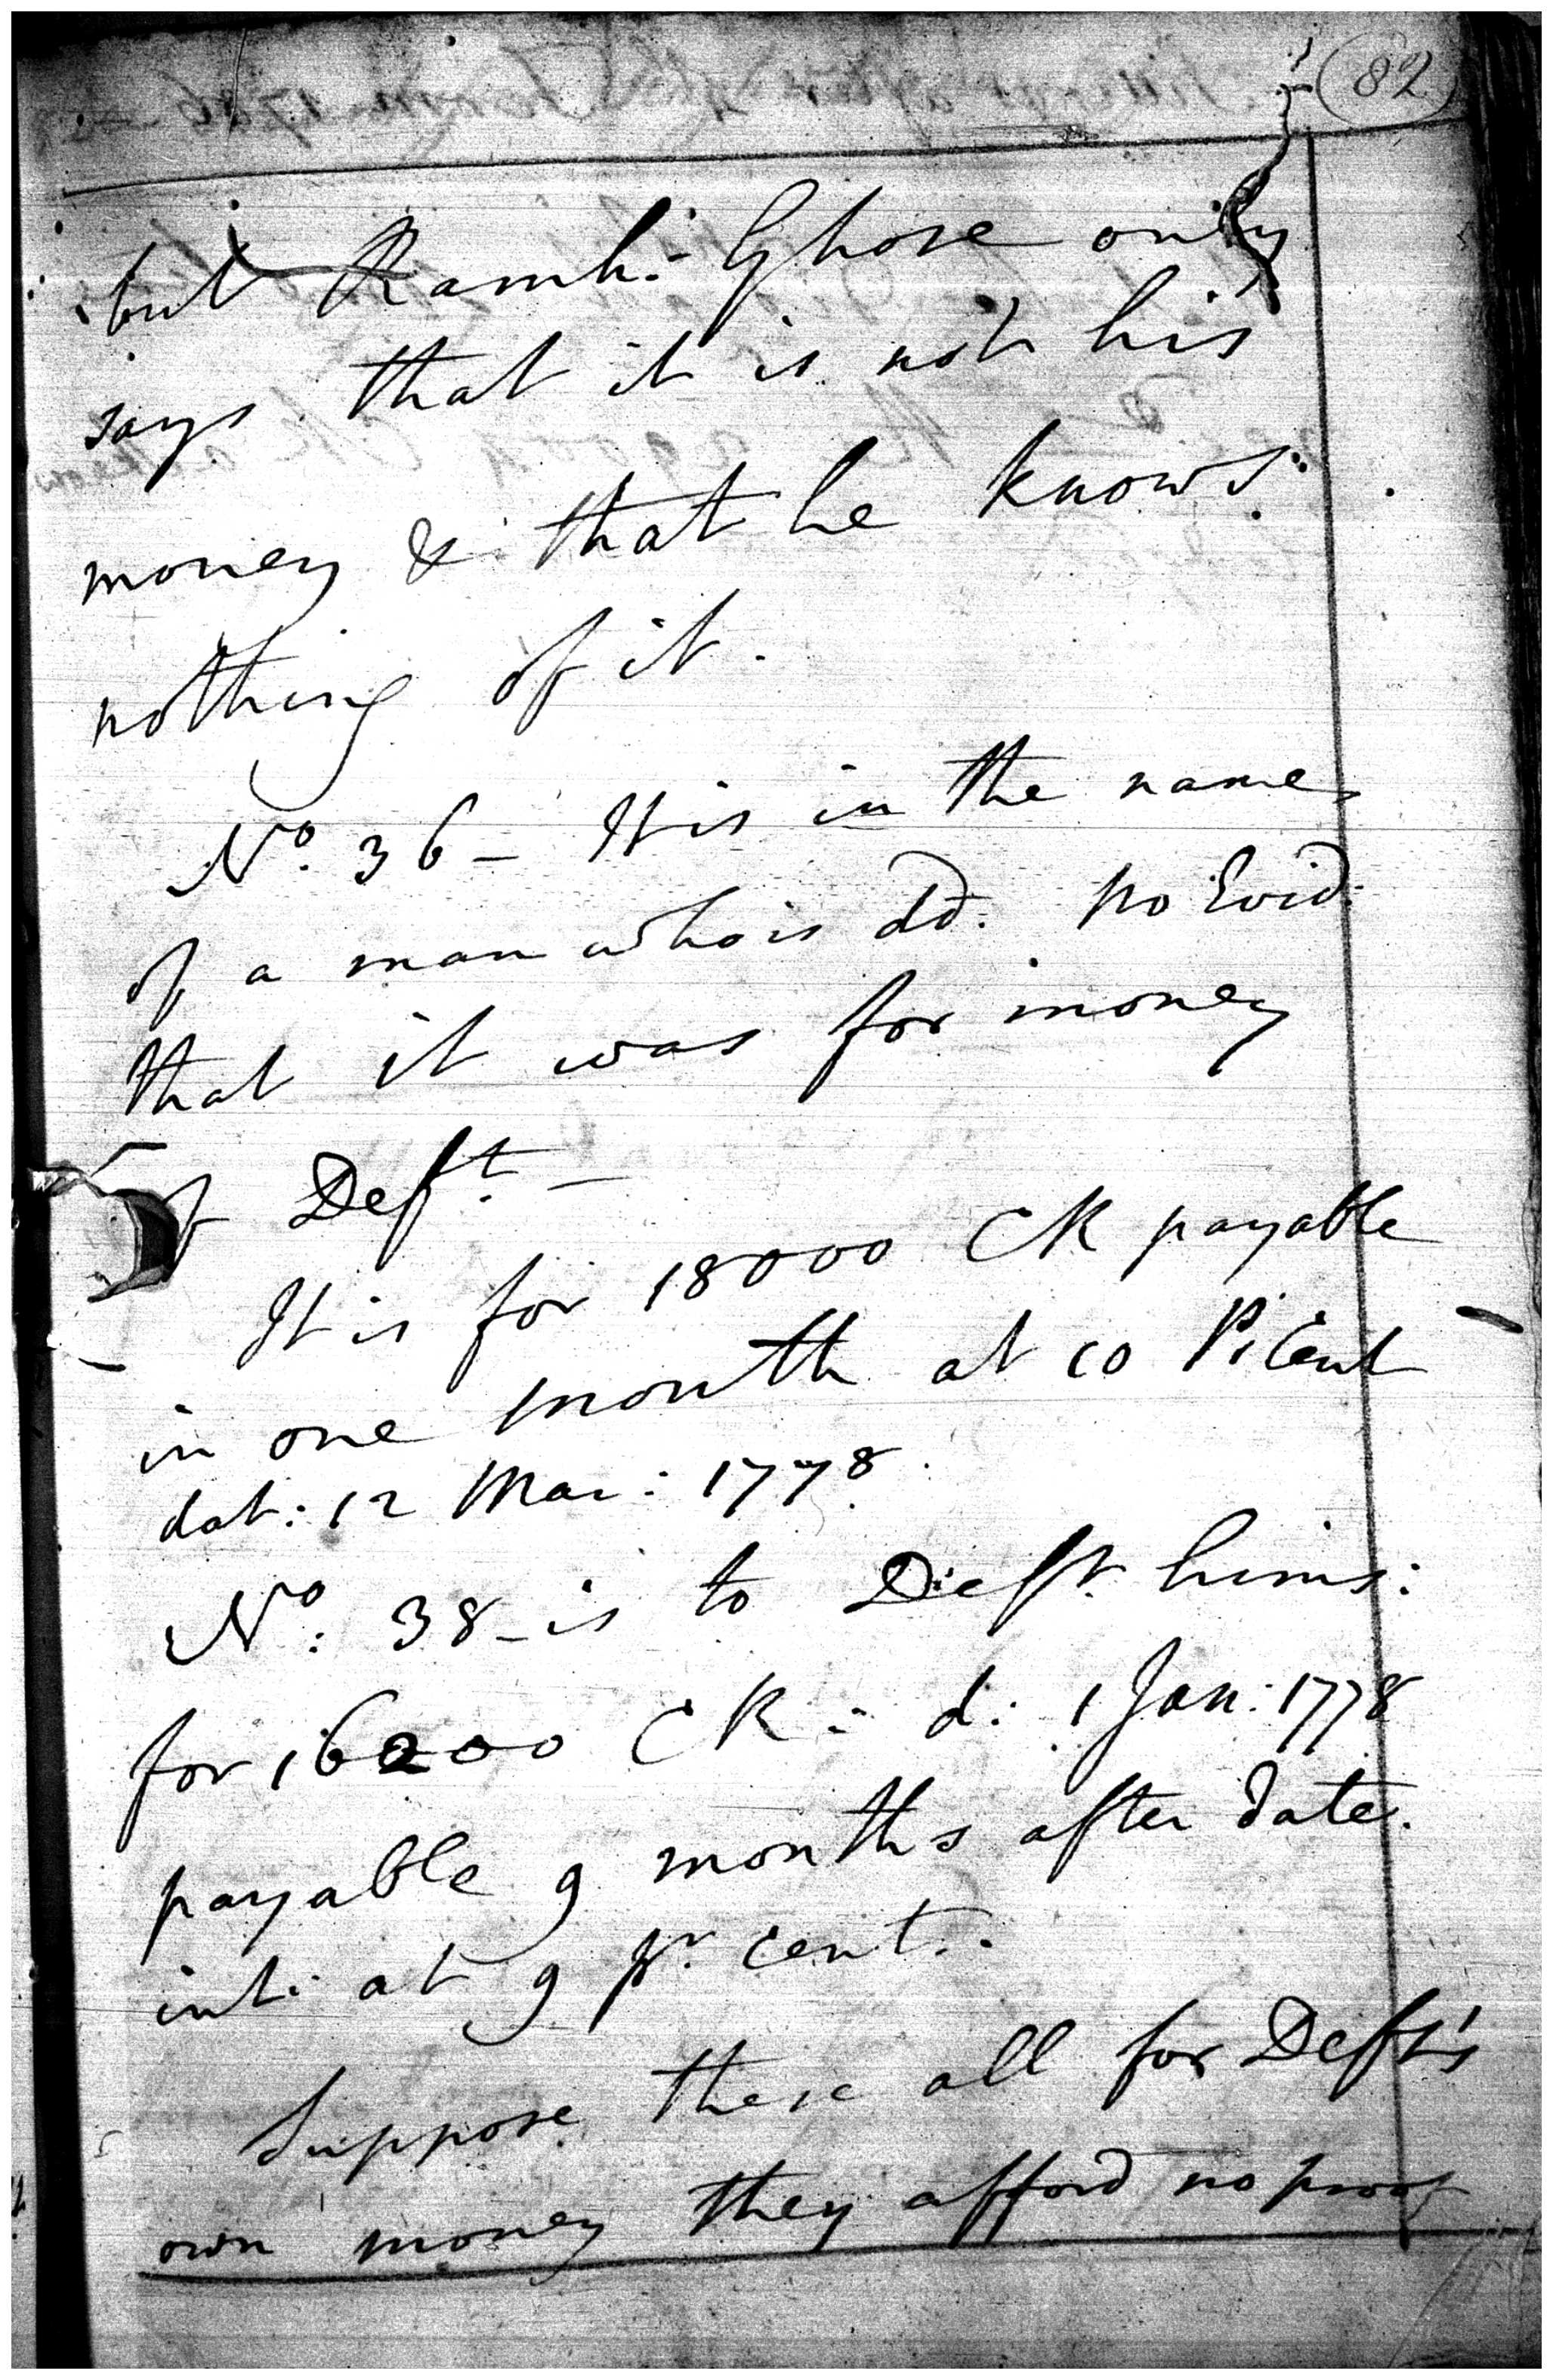 (82)
but Ramk:- Ghose only
says that it is not his
money & that he knows
nothing of it.
No. 36 - It is in the name
of a man who is dd. No Evid:
that it was for money
of Deft. -
It is for 18000 CR payable
in one month at 10 P. Cent
dat: 12 Mar: 1778.
No: 38 - is to Deft. hims:
for 16200 CR: d: 1 Jan: 1778
payable 9 months after date.
int: at 9 pr. cent.
Suppose these all for Deft's
own money they afford no proof